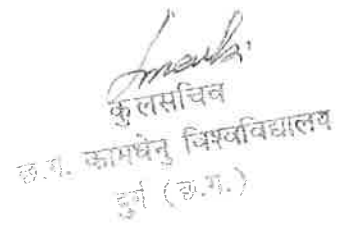 कुलसचिव
छ.ग. कामधेनु विश्वविद्यालय
दुर्ग (छ.ग.)